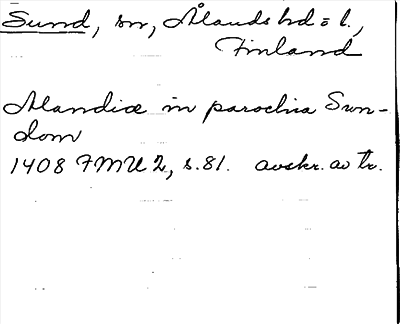 Sund, sn, Ålands hd = l.,
Finland
Alandiæ in parochia Sun-
dom
1408 FMU 2, s.81. avskr. av tr.